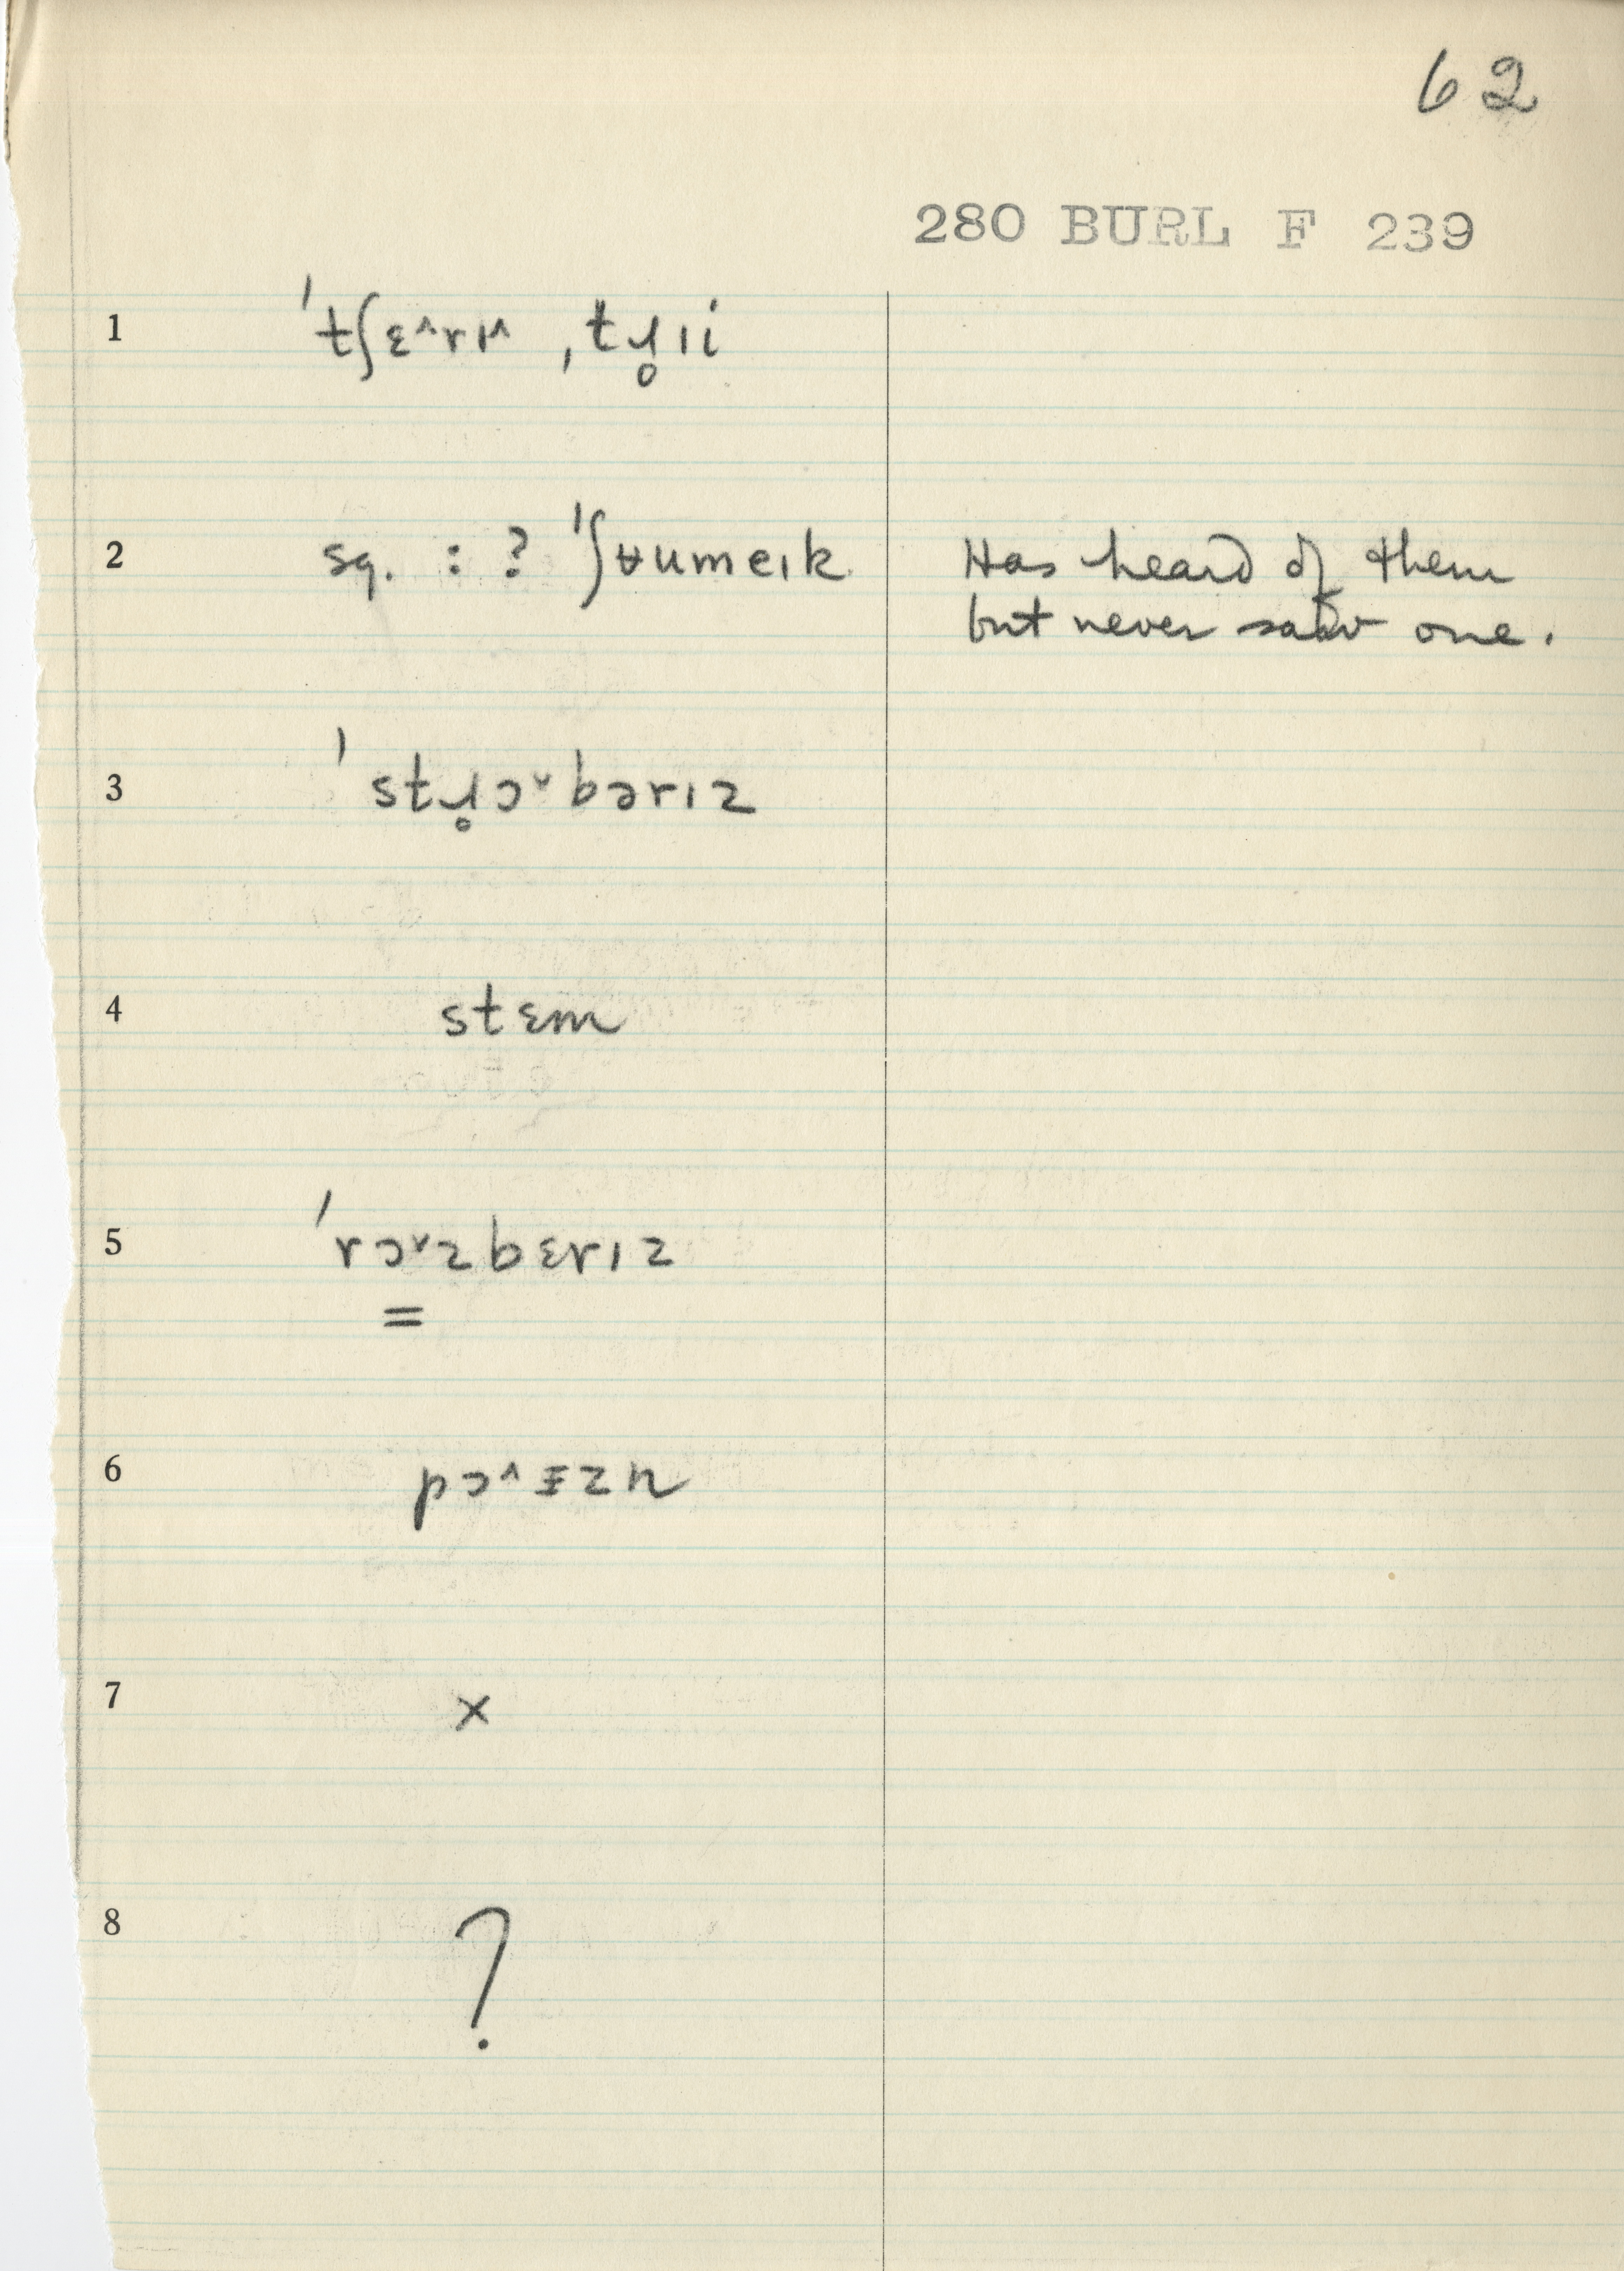 62
280 BURL F 239
1 ˈtʃɛ˄rɪ˄ ˌtɹ̥ɪi
2 sq. : ? ˈʃʉumeɪk Has heard of them
but never saw one.
3 ˈstɹ̥ɔ˅bərɪz
4 stɛm
5 ˈrɔ˅zbɛrɪz
=
6 pɔ˄ɪzn
7 x
8 ?